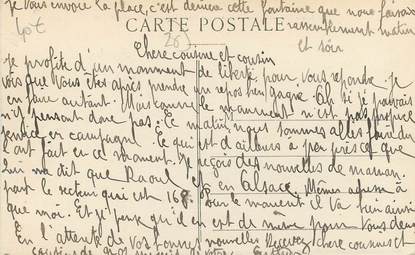 Je vous envoie la place, c'est derrière cette fontaine que nous faisons
CARTE POSTALE rassemblement matin
et soir
Chere cousine et cousin
Je profite d'un mannment de liberté pour vous repondre. Je
vois que vous etes après prendre un repos bien gagné. Ah si je pouvais
en faire autant. Mais comme le manument n'est pas propice
n'y pensont donc pas. Ce matin nous sommes allés faire du
service en campagne. Ce qui est d'ailleurs à peu près ce que
l'ont fait en ce moment. Je reçois des nouvelles de maman.
Lui ma dit que Raoul est en Alsace. Même adresse à
part le secteur qui est 169. Pour le moment il va bien ainsi
que moi. Et je pense qu'il en est de meme pour vous deux
En l'attente de vos bonnes nouvelles Recevez chere cousine et